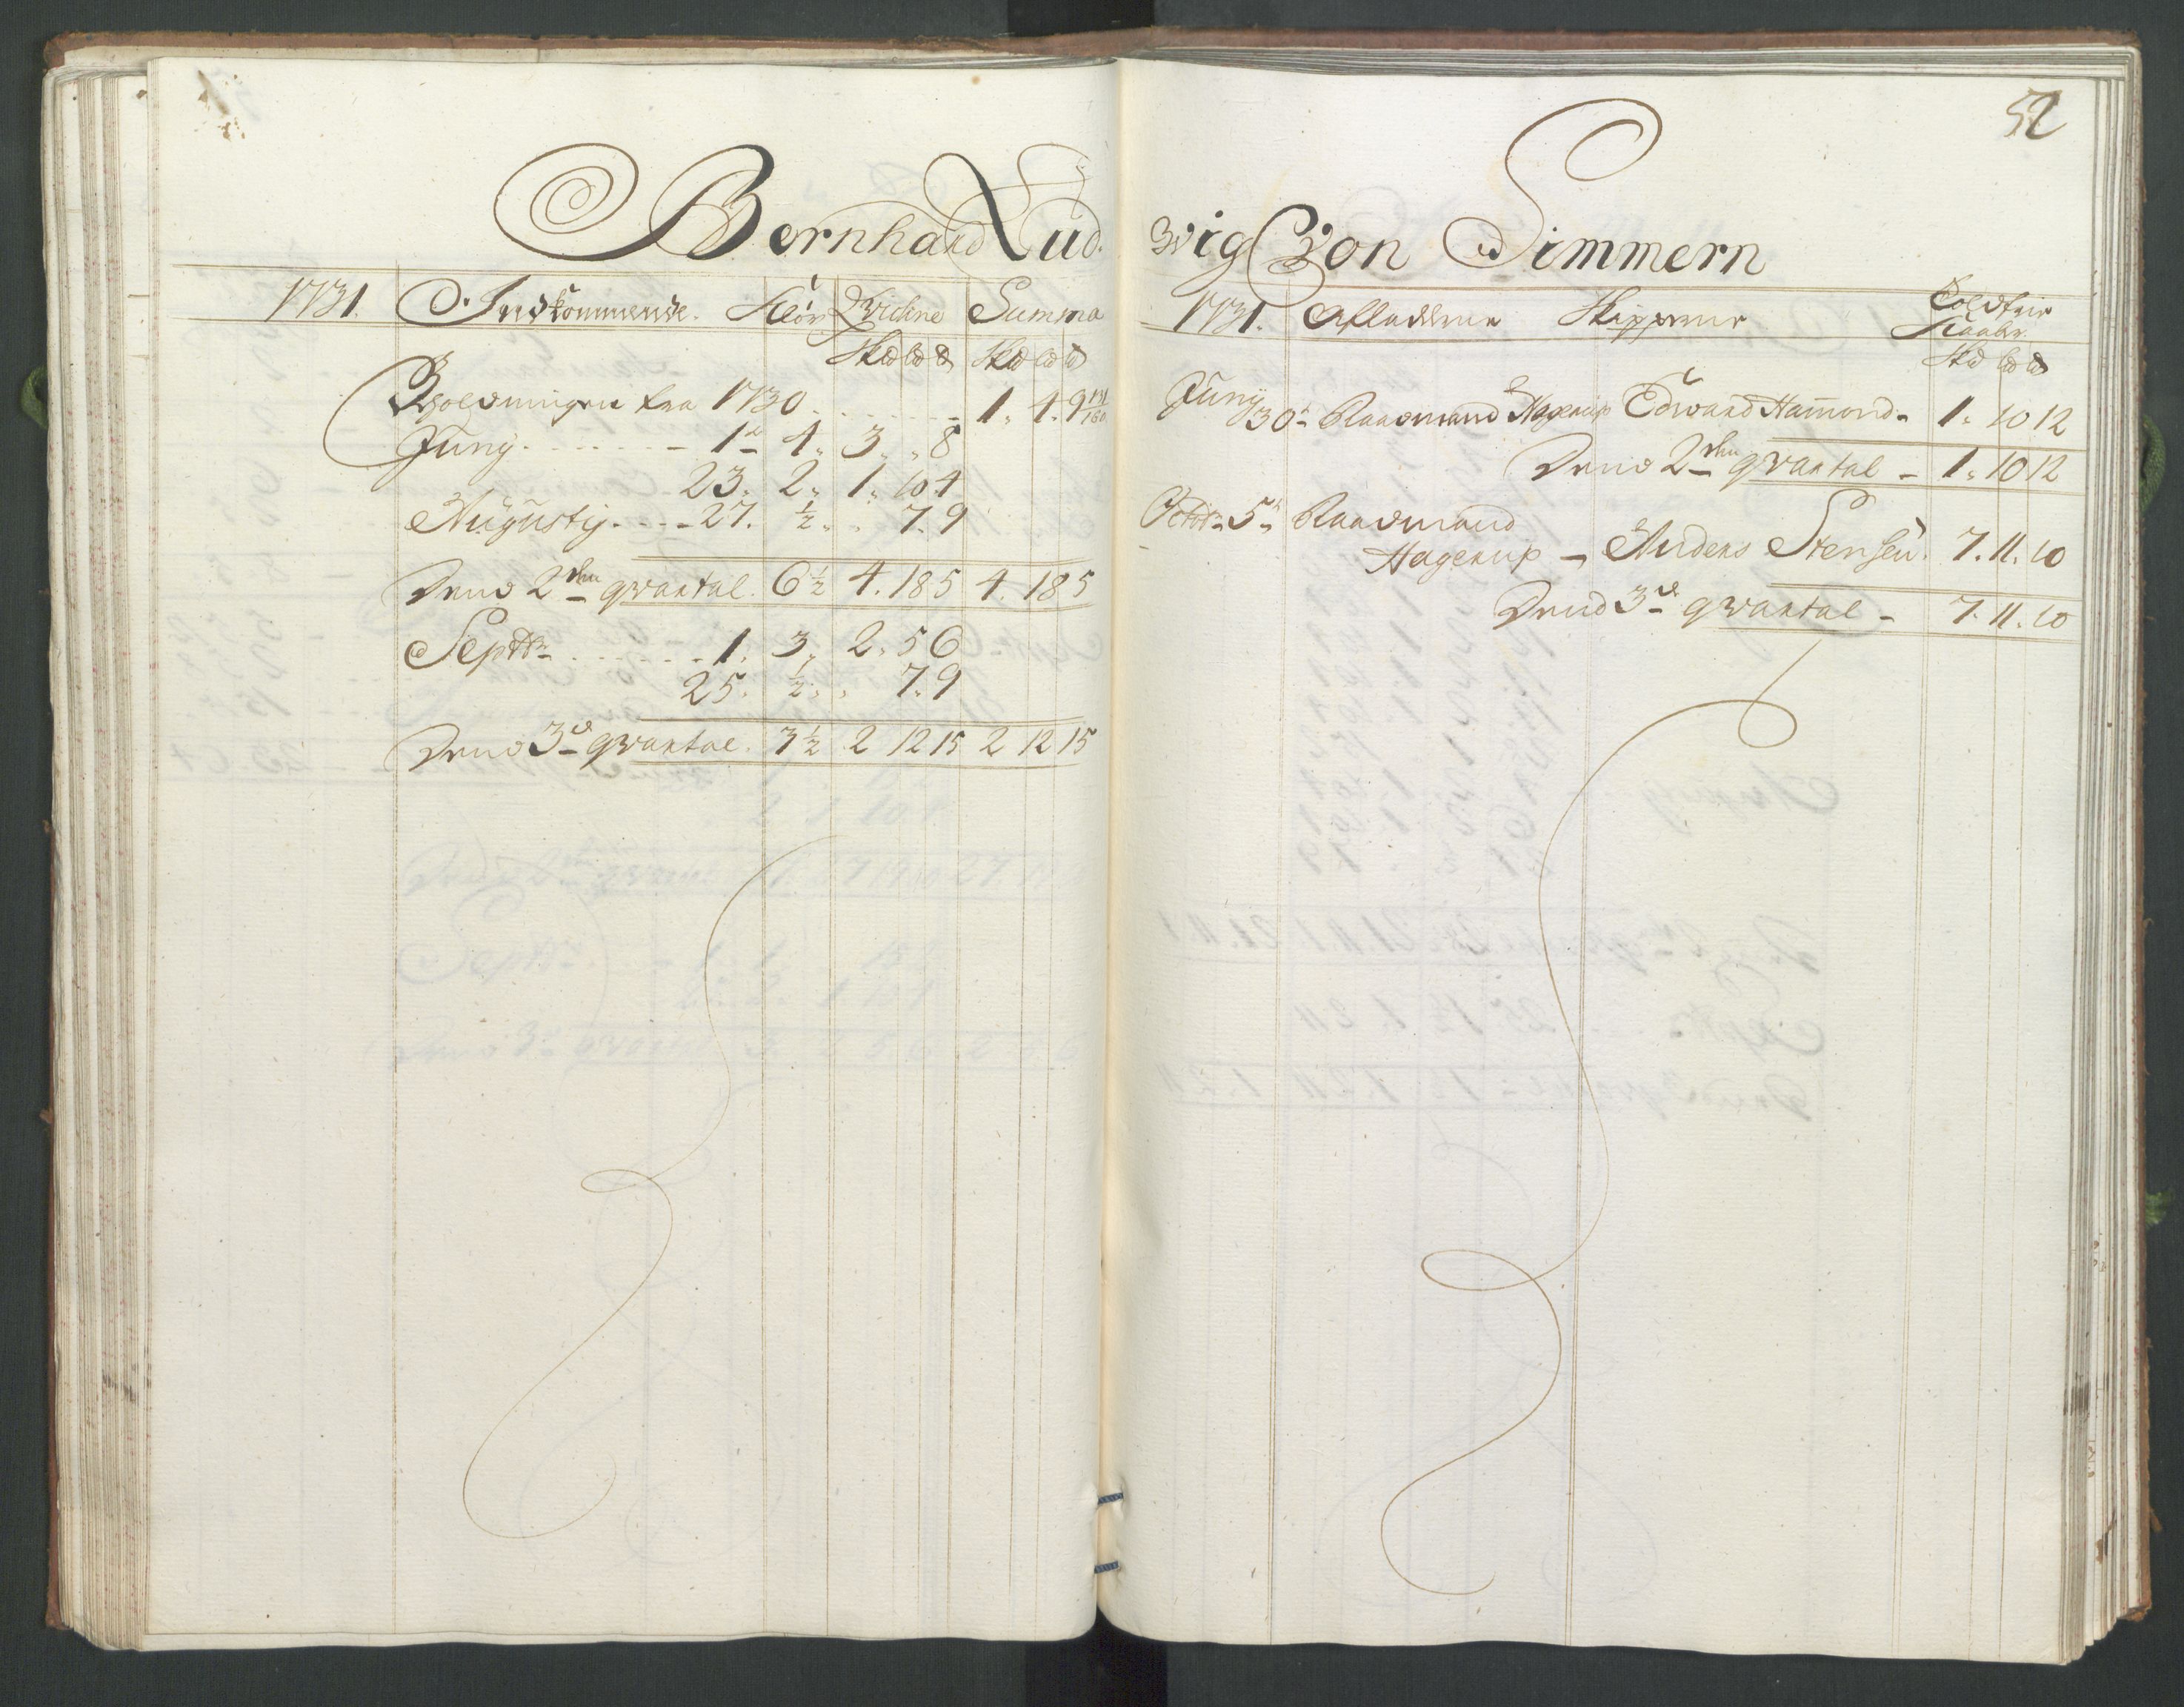 52
Bernhard Lud-
wig von Simmern
1731. Indkommende. Kiør Trichne Summa
Skd ld ℔ Skd ld ℔
Beholdningen fra 1730 . . . . . - 1. 4. 9 131/160
Juny. . . . . . - 1 - 4. 3. „ 8
23. 2. 1. 10 4
Augustij. . . . - 27. ½. „ 7. 9
Dend 2den qvartal. 6½ 4. 18 5 4. 18 5
Septbr . . . . . . - 1. 3. 2. 5 6
25. ½. „ 7. 9
Dend 3de qvartal. 3½ 2 12 15 2 12 15
1731. Afladerne Skipperne Toldfrie
Kaaber.
Skd ld ℔
Juny 30 - Raadmand Hagerup Edward Hammond - 1. 10 12
Dend 2den qvartal - 1. 10 12
Octobr 5 - Raadmand
Hagerup - Anders Stensen. 7. 11. 10
Dend 3de qvartal - 7. 11. 10